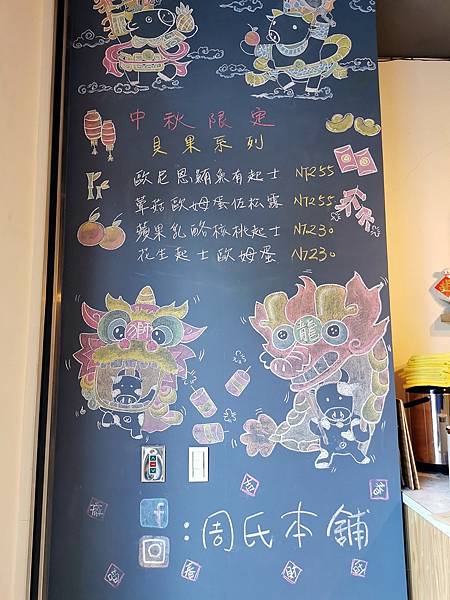 中秋限定
貝果系列
歐尼恩願氣有起士 NT255
蕈菇歐姆蛋佐松露 NT255
蘋果乳酪核桃起士 NT230
花生起士歐姆蛋 NT230
獅 龍
f
:周氏本鋪